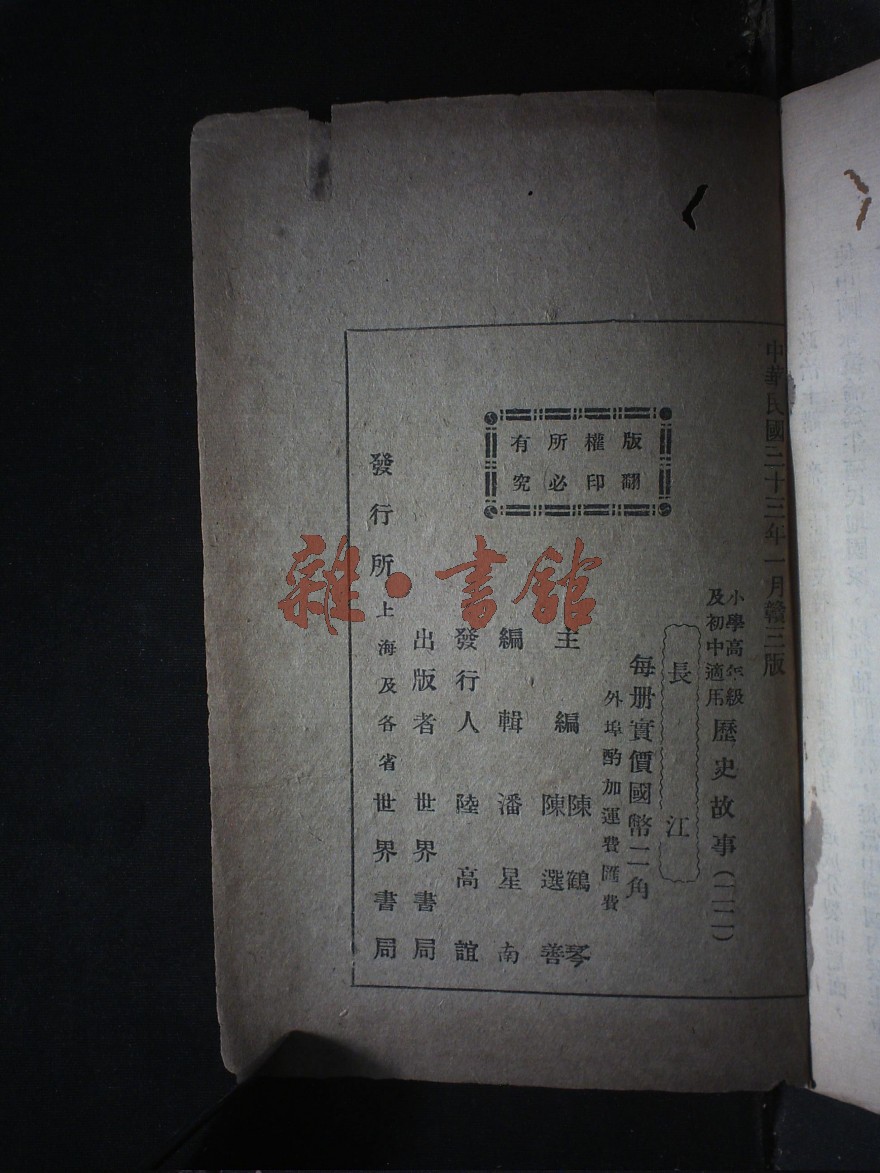 中華民國三十三年一月贛三版
小學高年級
及初中適用
歷史故事(二二)
長江
每册實價國幣二角
外埠酌加運費匯費
版權所有
翻印必究
主編 陳鶴琴
陳選善
編輯 潘星南
發行人 陸高誼
出版者 世界書局
發行所 上海及各省 世界書局
雜·書館